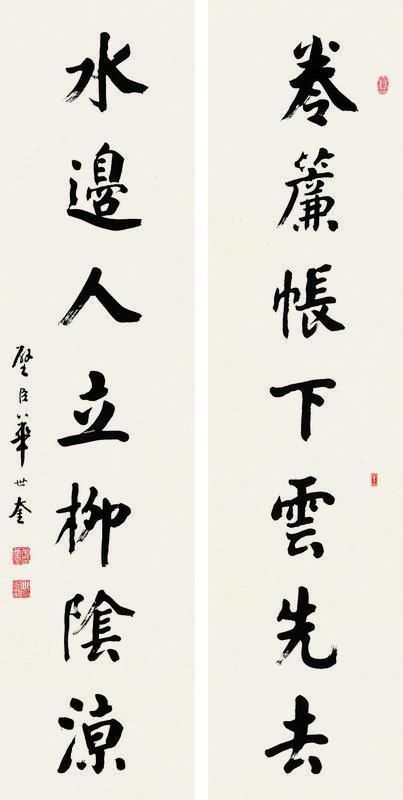 卷簾帳下雲先去
水邊人立柳陰涼
璧臣華世奎